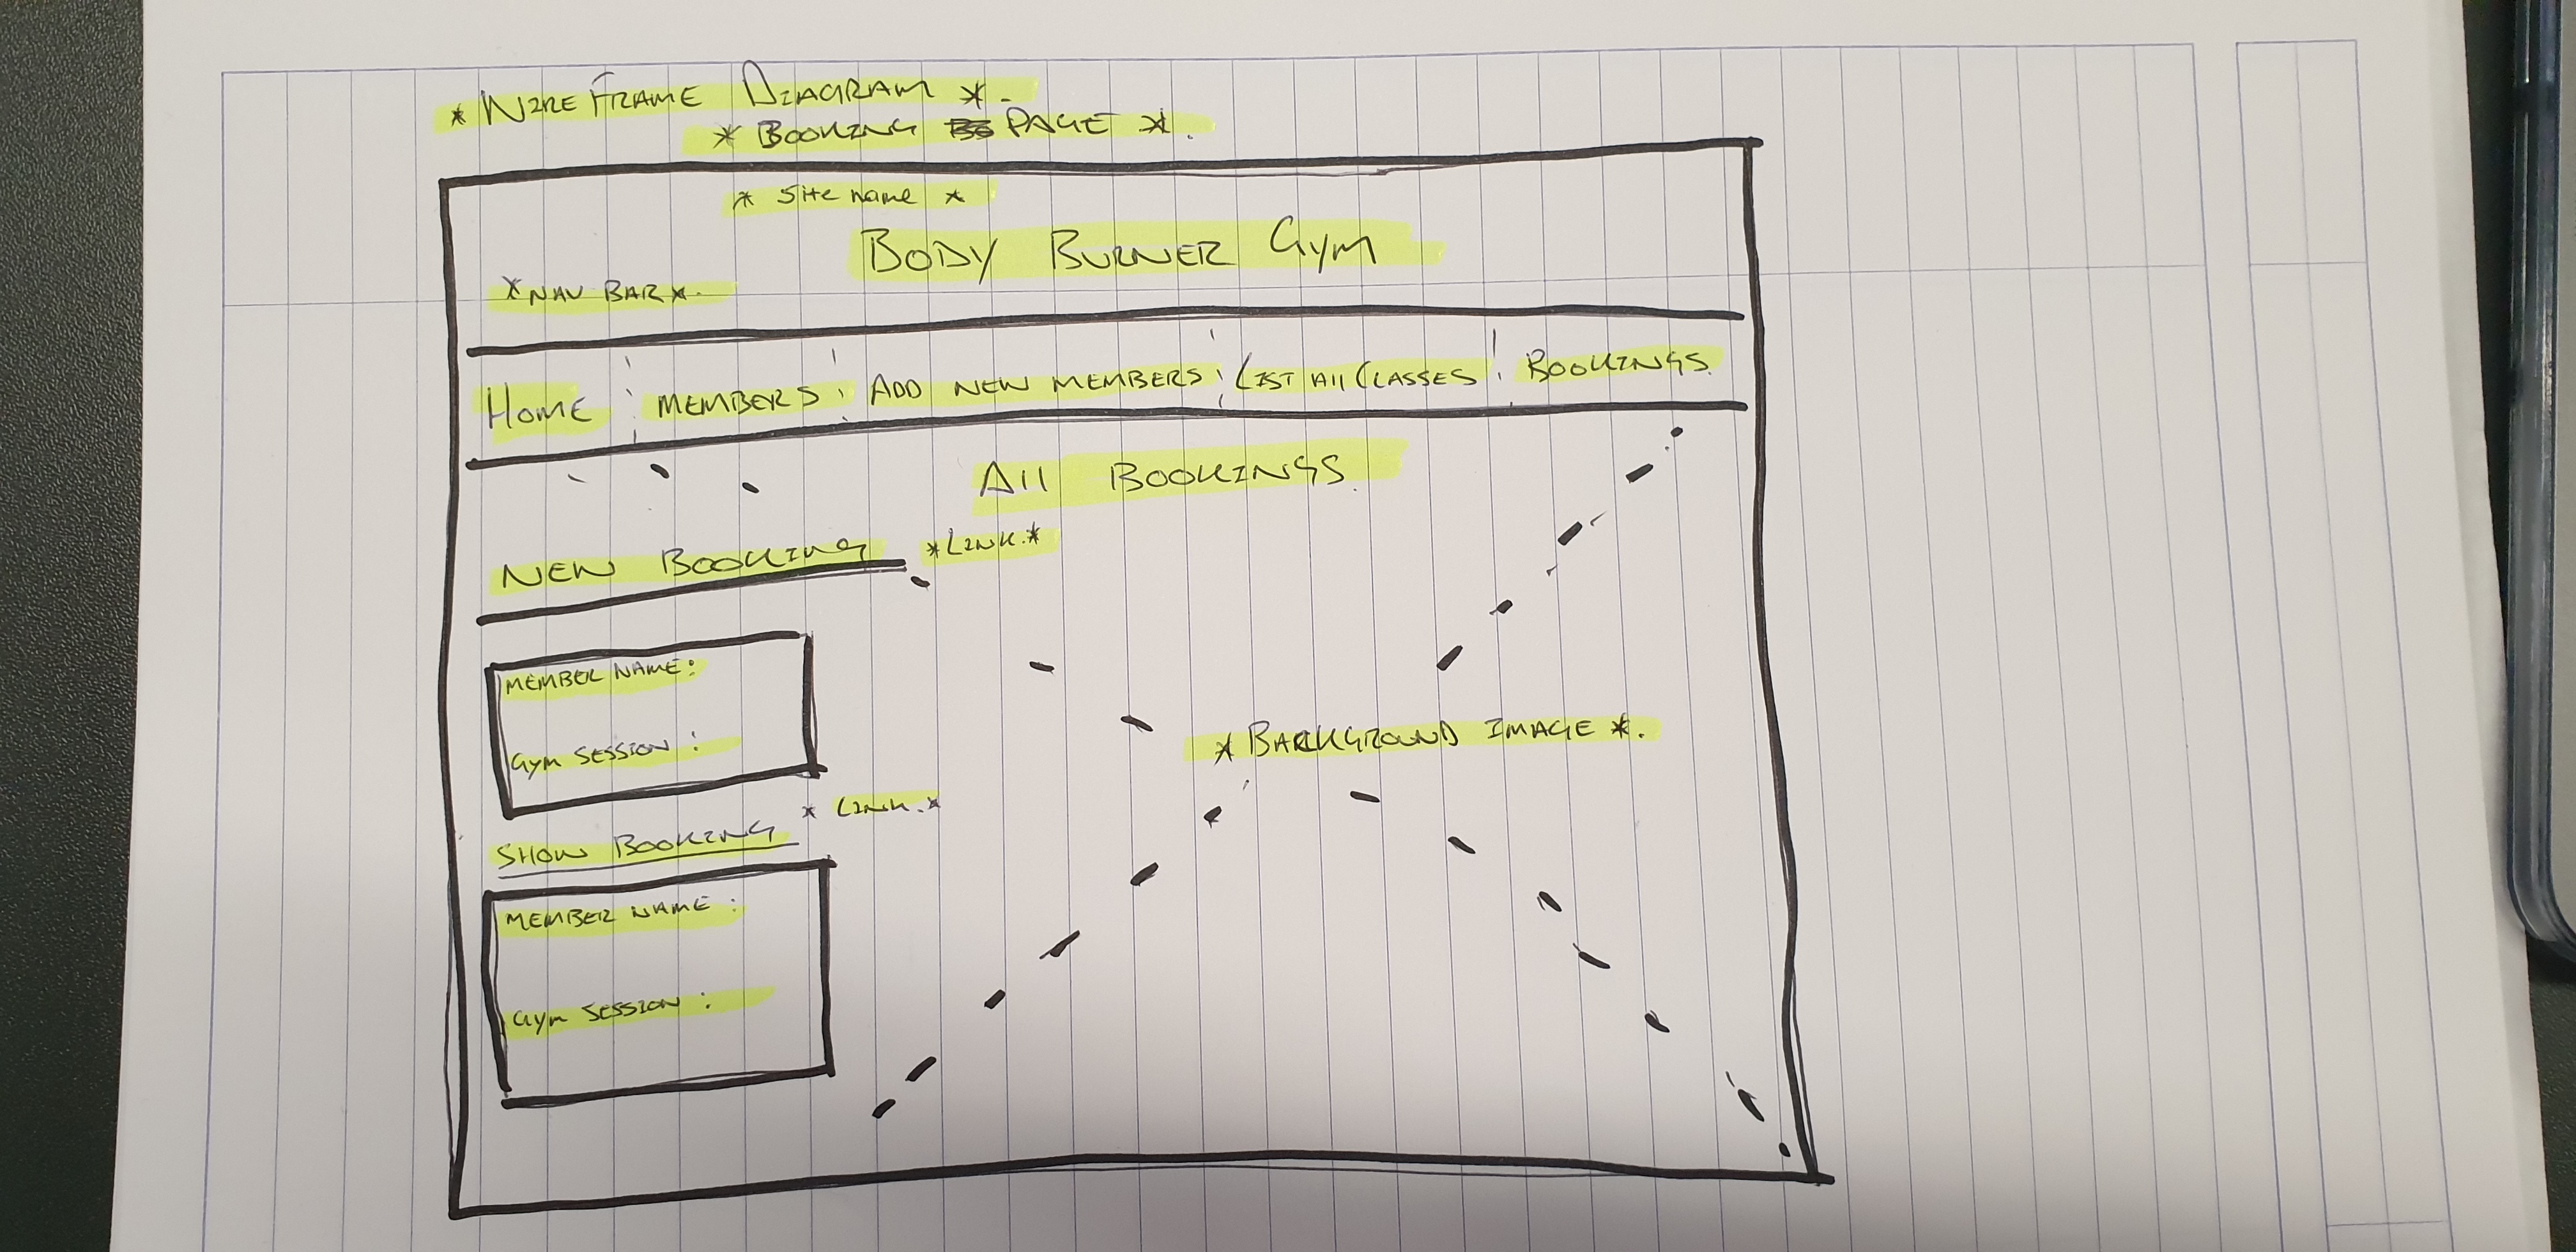 * WIREFRAME DIAGRAM *.
* BOOKING PAGE *.
* Site name *
BODY BURNER GYM
* NAV BAR *.
HOME MEMBERS ADD NEW MEMBERS LIST All CLASSES BOOKINGS.
All BOOKINGS.
NEW BOOKING *LINK.*
MEMBER NAME:
Gym SESSION :
* LINK.*
SHOW BOOKING
* BACKGROUND IMAGE *.
MEMBER NAME :
Gym SESSION :